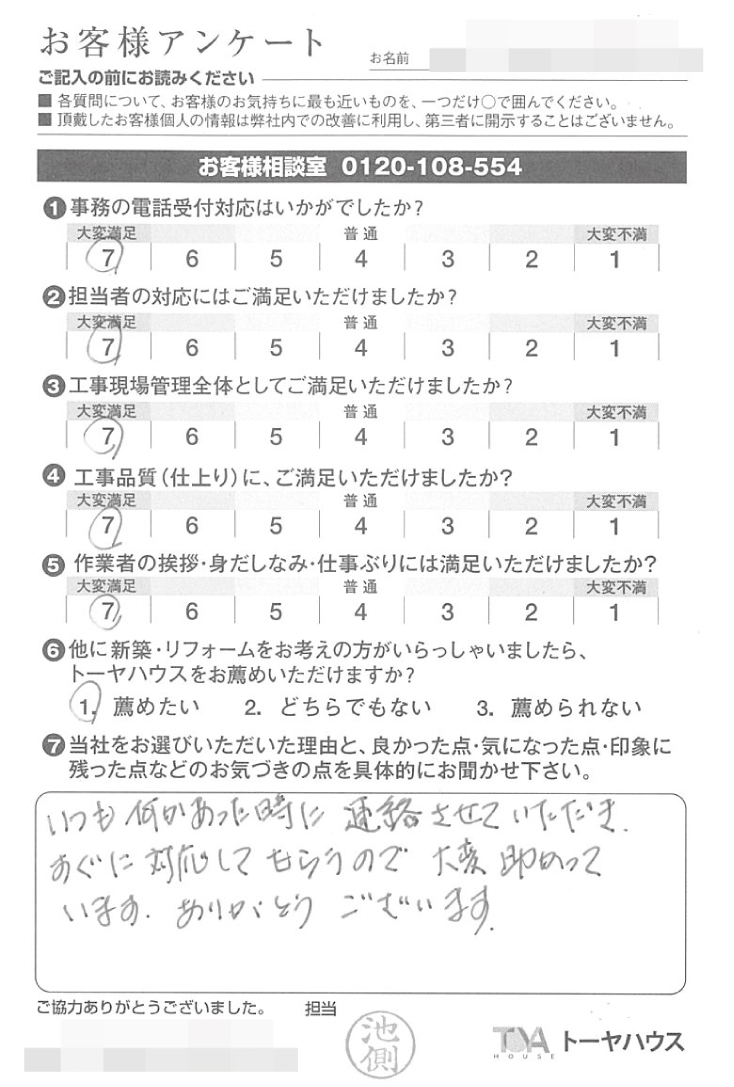 お客様アンケート
お名前
ご記入の前にお読みください
■ 各質問について、お客様のお気持ちに最も近いものを、一つだけ○で囲んでください。
■ 頂戴したお客様個人の情報は弊社内での改善に利用し、第三者に開示することはございません。
お客様相談室 0120-108-554
❶事務の電話受付対応はいかがでしたか？
大変満足 普通 大変不満
7 6 5 4 3 2 1
❷担当者の対応にはご満足いただけましたか？
大変満足 普通 大変不満
7 6 5 4 3 2 1
❸工事現場管理全体としてご満足いただけましたか？
大変満足 普通 大変不満
7 6 5 4 3 2 1
❹工事品質（仕上り）に、ご満足いただけましたか？
大変満足 普通 大変不満
7 6 5 4 3 2 1
❺作業者の挨拶・身だしなみ・仕事ぶりには満足いただけましたか？
大変満足 普通 大変不満
7 6 5 4 3 2 1
❻他に新築・リフォームをお考えの方がいらっしゃいましたら、
トーヤハウスをお薦めいただけますか？
1. 薦めたい 2. どちらでもない 3. 薦められない
❼当社をお選びいただいた理由と、良かった点・気になった点・印象に
残った点などのお気づきの点を具体的にお聞かせ下さい。
いつも何かあった時に連絡させていただき、
すぐに対応してもらうので大変助かって
います。ありがとうございます。
ご協力ありがとうございました。 担当
池側
TOYA HOUSE トーヤハウス